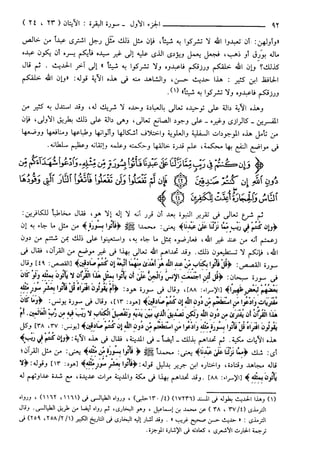 ٩٢ الجزء الأول - سورة البقرة : الآيتان ( ٢٣ ، ٢٤ )
«وأولهن: أن تعبدوا الله لا تشركوا به شيئاً، فإن مثل ذلك مثل رجل اشترى عبداً من خالص
ماله بورق أو ذهب، فجعل يعمل ويؤدى الذى عليه إلى غير سيده فأيكم يسره أن يكون عبده
كذلك؟ وإن الله خلقكم ورزقكم فاعبدوه ولا تشركوا به شيئاً » إلى آخر الحديث . ثم قال
الحافظ ابن كثير : هذا حديث حسن، والشاهد منه فى هذه الآية قوله: «وإن الله خلقكم
ورزقكم فاعبدوه ولا تشركوا به شيئاً» (١).
وهذه الآية دالة على توحيده تعالى بالعبادة وحده لا شريك له، وقد استدل به كثير من
المفسرين - كالرازى وغيره - على وجود الصانع تعالى، وهى دالة على ذلك بطريق الأولى، فإن
من تأمل هذه الموجودات السفلية والعلوية واختلاف أشكالها وألوانها وطباعها ومنافعها ووضعها
فى مواضع النفع بها محكمة، علم قدرة خالقها وحكمته وعلمه وإتقانه وعظيم سلطانه.
﴿ وَإِن كُنتُمْ فِي رَيْبٍ مِّمَّا نَزَّلْنَا عَلَىٰ عَبْدِنَا فَأْتُوا بِسُورَةٍ مِّن مِّثْلِهِ وَادْعُوا شُهَدَاءَكُم مِّن
دُونِ اللَّهِ إِن كُنتُمْ صَادِقِينَ ﴿٢٣﴾ فَإِن لَّمْ تَفْعَلُوا وَلَن تَفْعَلُوا فَاتَّقُوا النَّارَ الَّتِي وَقُودُهَا
النَّاسُ وَالْحِجَارَةُ أُعِدَّتْ لِلْكَافِرِينَ ﴿٢٤﴾
ثم شرع تعالى فى تقرير النبوة بعد أن قرر أنه لا إله إلا هو، فقال مخاطباً للكافرين:
﴿وَإِن كُنتُمْ فِي رَيْبٍ مِّمَّا نَزَّلْنَا عَلَىٰ عَبْدِنَا﴾ يعنى: محمداً ﷺ ﴿فَأْتُوا بِسُورَةٍ﴾ من مثل ما جاء به إن
زعمتم أنه من عند غير الله، فعارضوه بمثل ما جاء به، واستعينوا على ذلك بمن شئتم من دون
الله، فإنكم لا تستطيعون ذلك. وقد تحداهم الله تعالى بهذا فى غير موضع من القرآن، فقال فى
سورة القصص: ﴿قُلْ فَأْتُوا بِكِتَابٍ مِّنْ عِندِ اللَّهِ هُوَ أَهْدَىٰ مِنْهُمَا أَتَّبِعْهُ إِن كُنتُمْ صَادِقِينَ﴾ [القصص: ٤٩] وقال
فى سورة سبحان: ﴿قُل لَّئِنِ اجْتَمَعَتِ الْإِنسُ وَالْجِنُّ عَلَىٰ أَن يَأْتُوا بِمِثْلِ هَٰذَا الْقُرْآنِ لَا يَأْتُونَ بِمِثْلِهِ وَلَوْ كَانَ
بَعْضُهُمْ لِبَعْضٍ ظَهِيرًا﴾ [الإسراء: ٨٨]، وقال فى سورة هود: ﴿أَمْ يَقُولُونَ افْتَرَاهُ قُلْ فَأْتُوا بِعَشْرِ سُوَرٍ مِّثْلِهِ
مُفْتَرَيَاتٍ وَادْعُوا مَنِ اسْتَطَعْتُم مِّن دُونِ اللَّهِ إِن كُنتُمْ صَادِقِينَ﴾ [هود: ١٣]، وقال فى سورة يونس: ﴿وَمَا كَانَ
هَٰذَا الْقُرْآنُ أَن يُفْتَرَىٰ مِن دُونِ اللَّهِ وَلَٰكِن تَصْدِيقَ الَّذِي بَيْنَ يَدَيْهِ وَتَفْصِيلَ الْكِتَابِ لَا رَيْبَ فِيهِ مِن رَّبِّ الْعَالَمِينَ. أَمْ
يَقُولُونَ افْتَرَاهُ قُلْ فَأْتُوا بِسُورَةٍ مِّثْلِهِ وَادْعُوا مَنِ اسْتَطَعْتُم مِّن دُونِ اللَّهِ إِن كُنتُمْ صَادِقِينَ﴾ [يونس: ٣٧، ٣٨] وكل
هذه الآيات مكية. ثم تحداهم بذلك - أيضاً - فى المدينة، فقال فى هذه الآية: ﴿وَإِن كُنتُمْ فِي رَيْبٍ﴾
أى: شك ﴿مِّمَّا نَزَّلْنَا عَلَىٰ عَبْدِنَا﴾ يعنى: محمداً ﷺ ﴿فَأْتُوا بِسُورَةٍ مِّن مِّثْلِهِ﴾ يعنى: من مثل القرآن؛
قاله مجاهد وقتادة، واختاره ابن جرير بدليل قوله: ﴿فَأْتُوا بِعَشْرِ سُوَرٍ مِّثْلِهِ﴾ [هود: ١٣] وقوله: ﴿لَا
يَأْتُونَ بِمِثْلِهِ﴾ [الإسراء: ٨٨]. وقد تحداهم بهذا فى مكة والمدينة مرات عديدة، مع شدة عداوتهم له
(١) وهذا الحديث بطوله فى المسند (١٧٢٣٦) (٤/ ١٣٠ حلبى) ، ورواه الطيالسى فى (١١٦١، ١١٦٢) ، ورواه
الترمذى (٤/ ٣٧، ٣٨) عن محمد بن إسماعيل ، وهو البخارى، ثم رواه أيضاً من طريق الطيالسى. وقال
الترمذى : « حديث حسن صحيح غريب » . وقد أشار إليه البخارى فى التاريخ الكبير (١/ ٢/ ٢٥٨، ٢٥٩) فى
ترجمة الحارث الأشعرى ، كعادته فى الإشارة الموجزة.